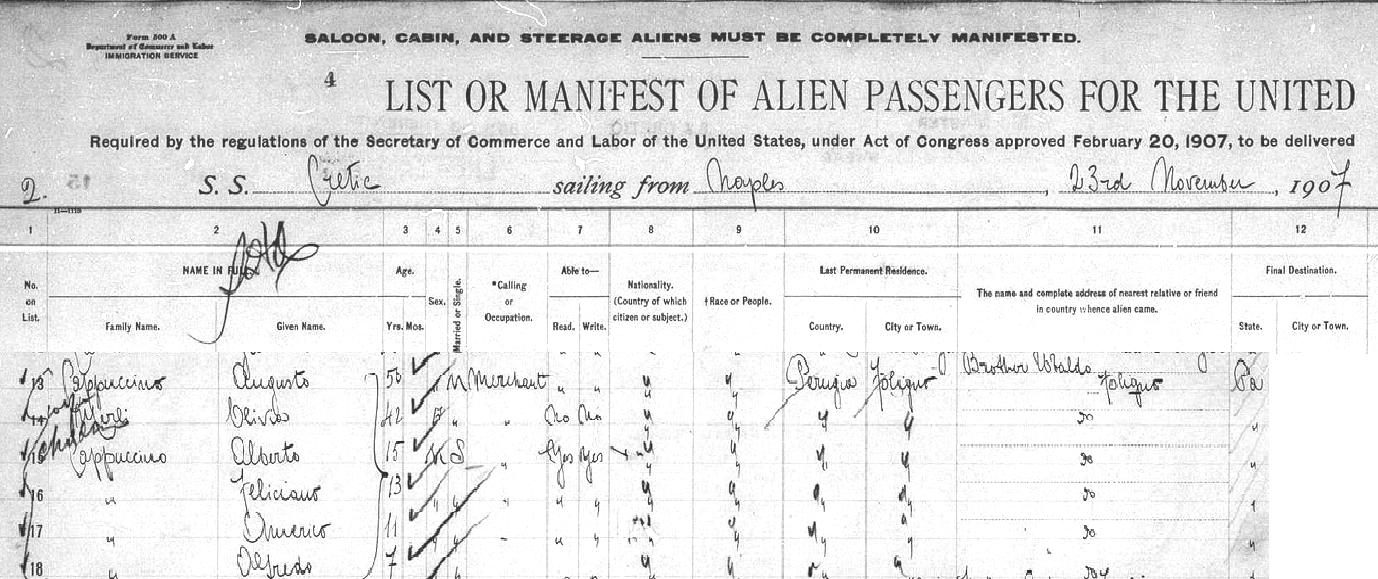 Form 500 A
Department of Commerce and Labor
IMMIGRATION SERVICE
SALOON, CABIN, AND STEERAGE ALIENS MUST BE COMPLETELY MANIFESTED.
4
LIST OR MANIFEST OF ALIEN PASSENGERS FOR THE UNITED
Required by the regulations of the Secretary of Commerce and Labor of the United States, under Act of Congress approved February 20, 1907, to be delivered
2. S. S. Cretic sailing from Naples, 23rd November, 1907
1 2 3 4 5 6 7 8 9 10 11 12
No. on List.
NAME IN FULL.
Family Name. Given Name.
Age.
Yrs. Mos.
Sex.
Married or Single.
*Calling or Occupation.
Able to—
Read. Write.
Nationality. (Country of which citizen or subject.)
†Race or People.
Last Permanent Residence.
Country. City or Town.
The name and complete address of nearest relative or friend in country whence alien came.
Final Destination.
State. City or Town.
13 Cappuccino Augusto 50 M Merchant " " " " Perugia Foligno Brother Ubaldo Foligno Pa
14 Olivia 42 " " No No " " " " do "
15 Cappuccino Alberto 15 M S " Yes Yes " " " " do "
16 " Feliciano 13 " " " " " " " " " do "
17 " Americo 11 " " " " " " " " " do "
18 " Alfredo 7 " " " " " " " "